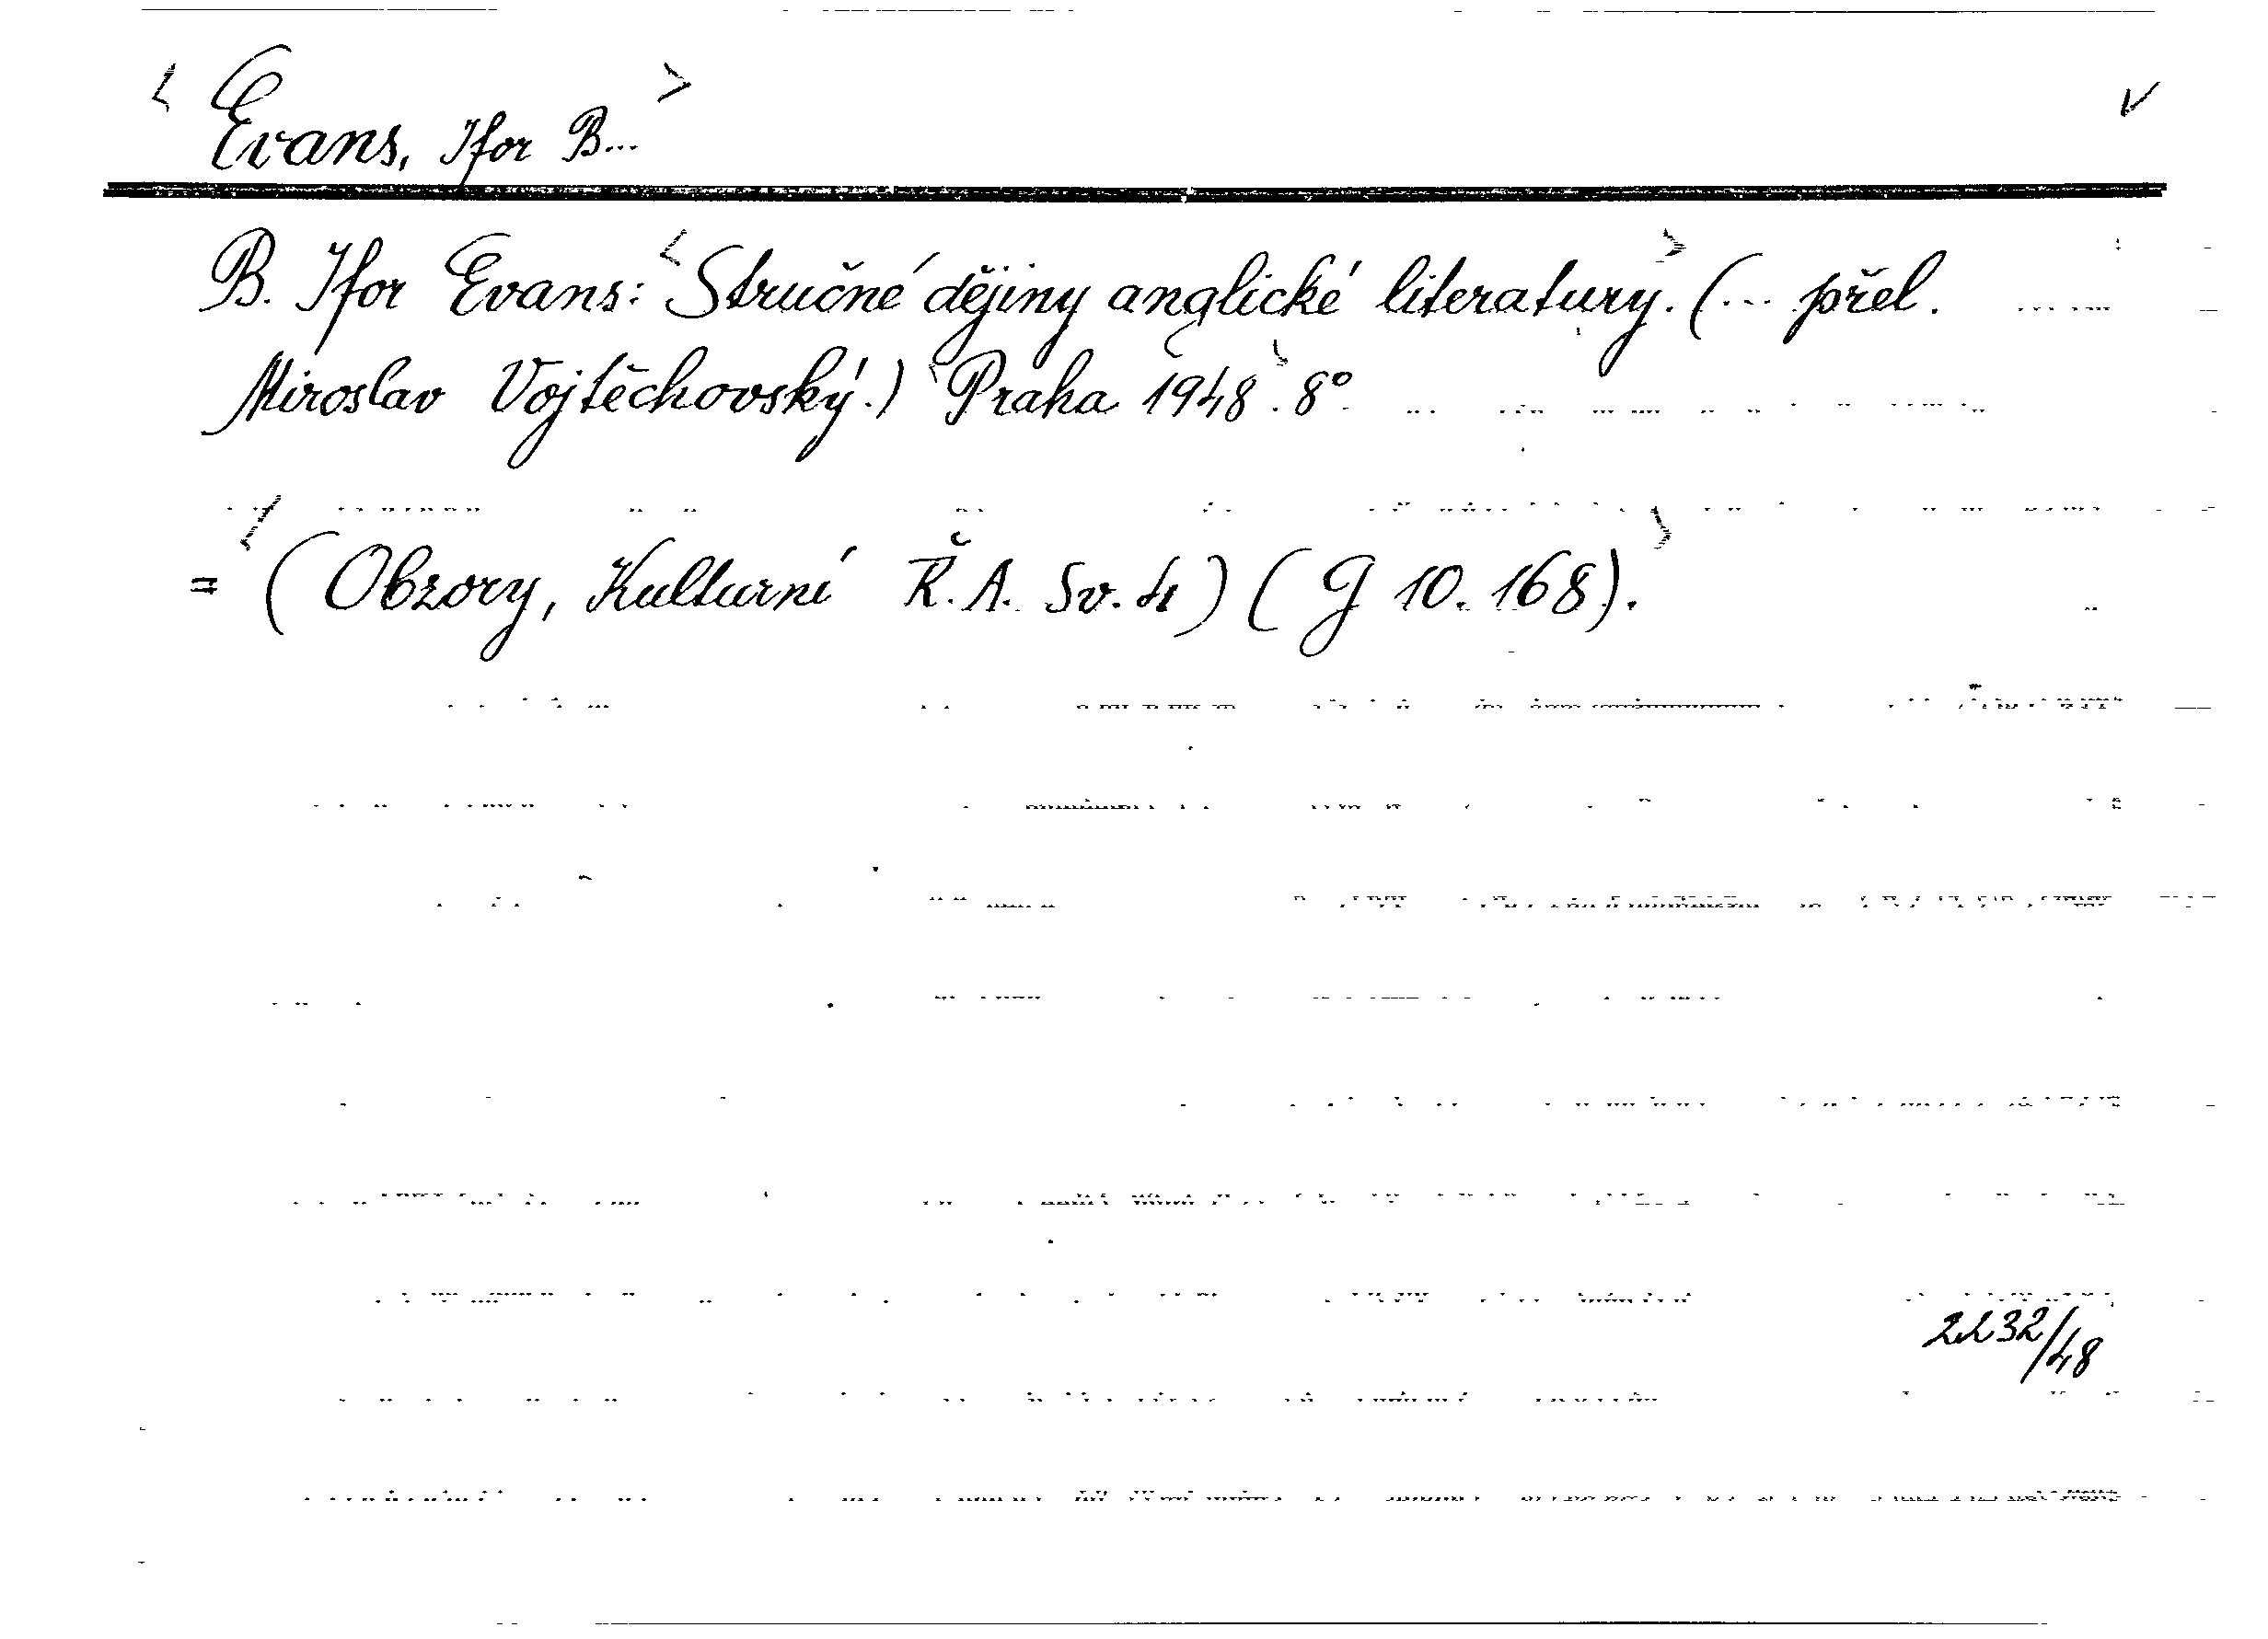 < Evans, Ifor B... > ✓
B. Ifor Evans: <Stručné dějiny anglické literatury>. (... přel.
Miroslav Vojtěchovský.) <Praha 1948>. 8°
= <(Obzory, Kulturní Ř. A. Sv. 4) (G 10.168).>
2232/48